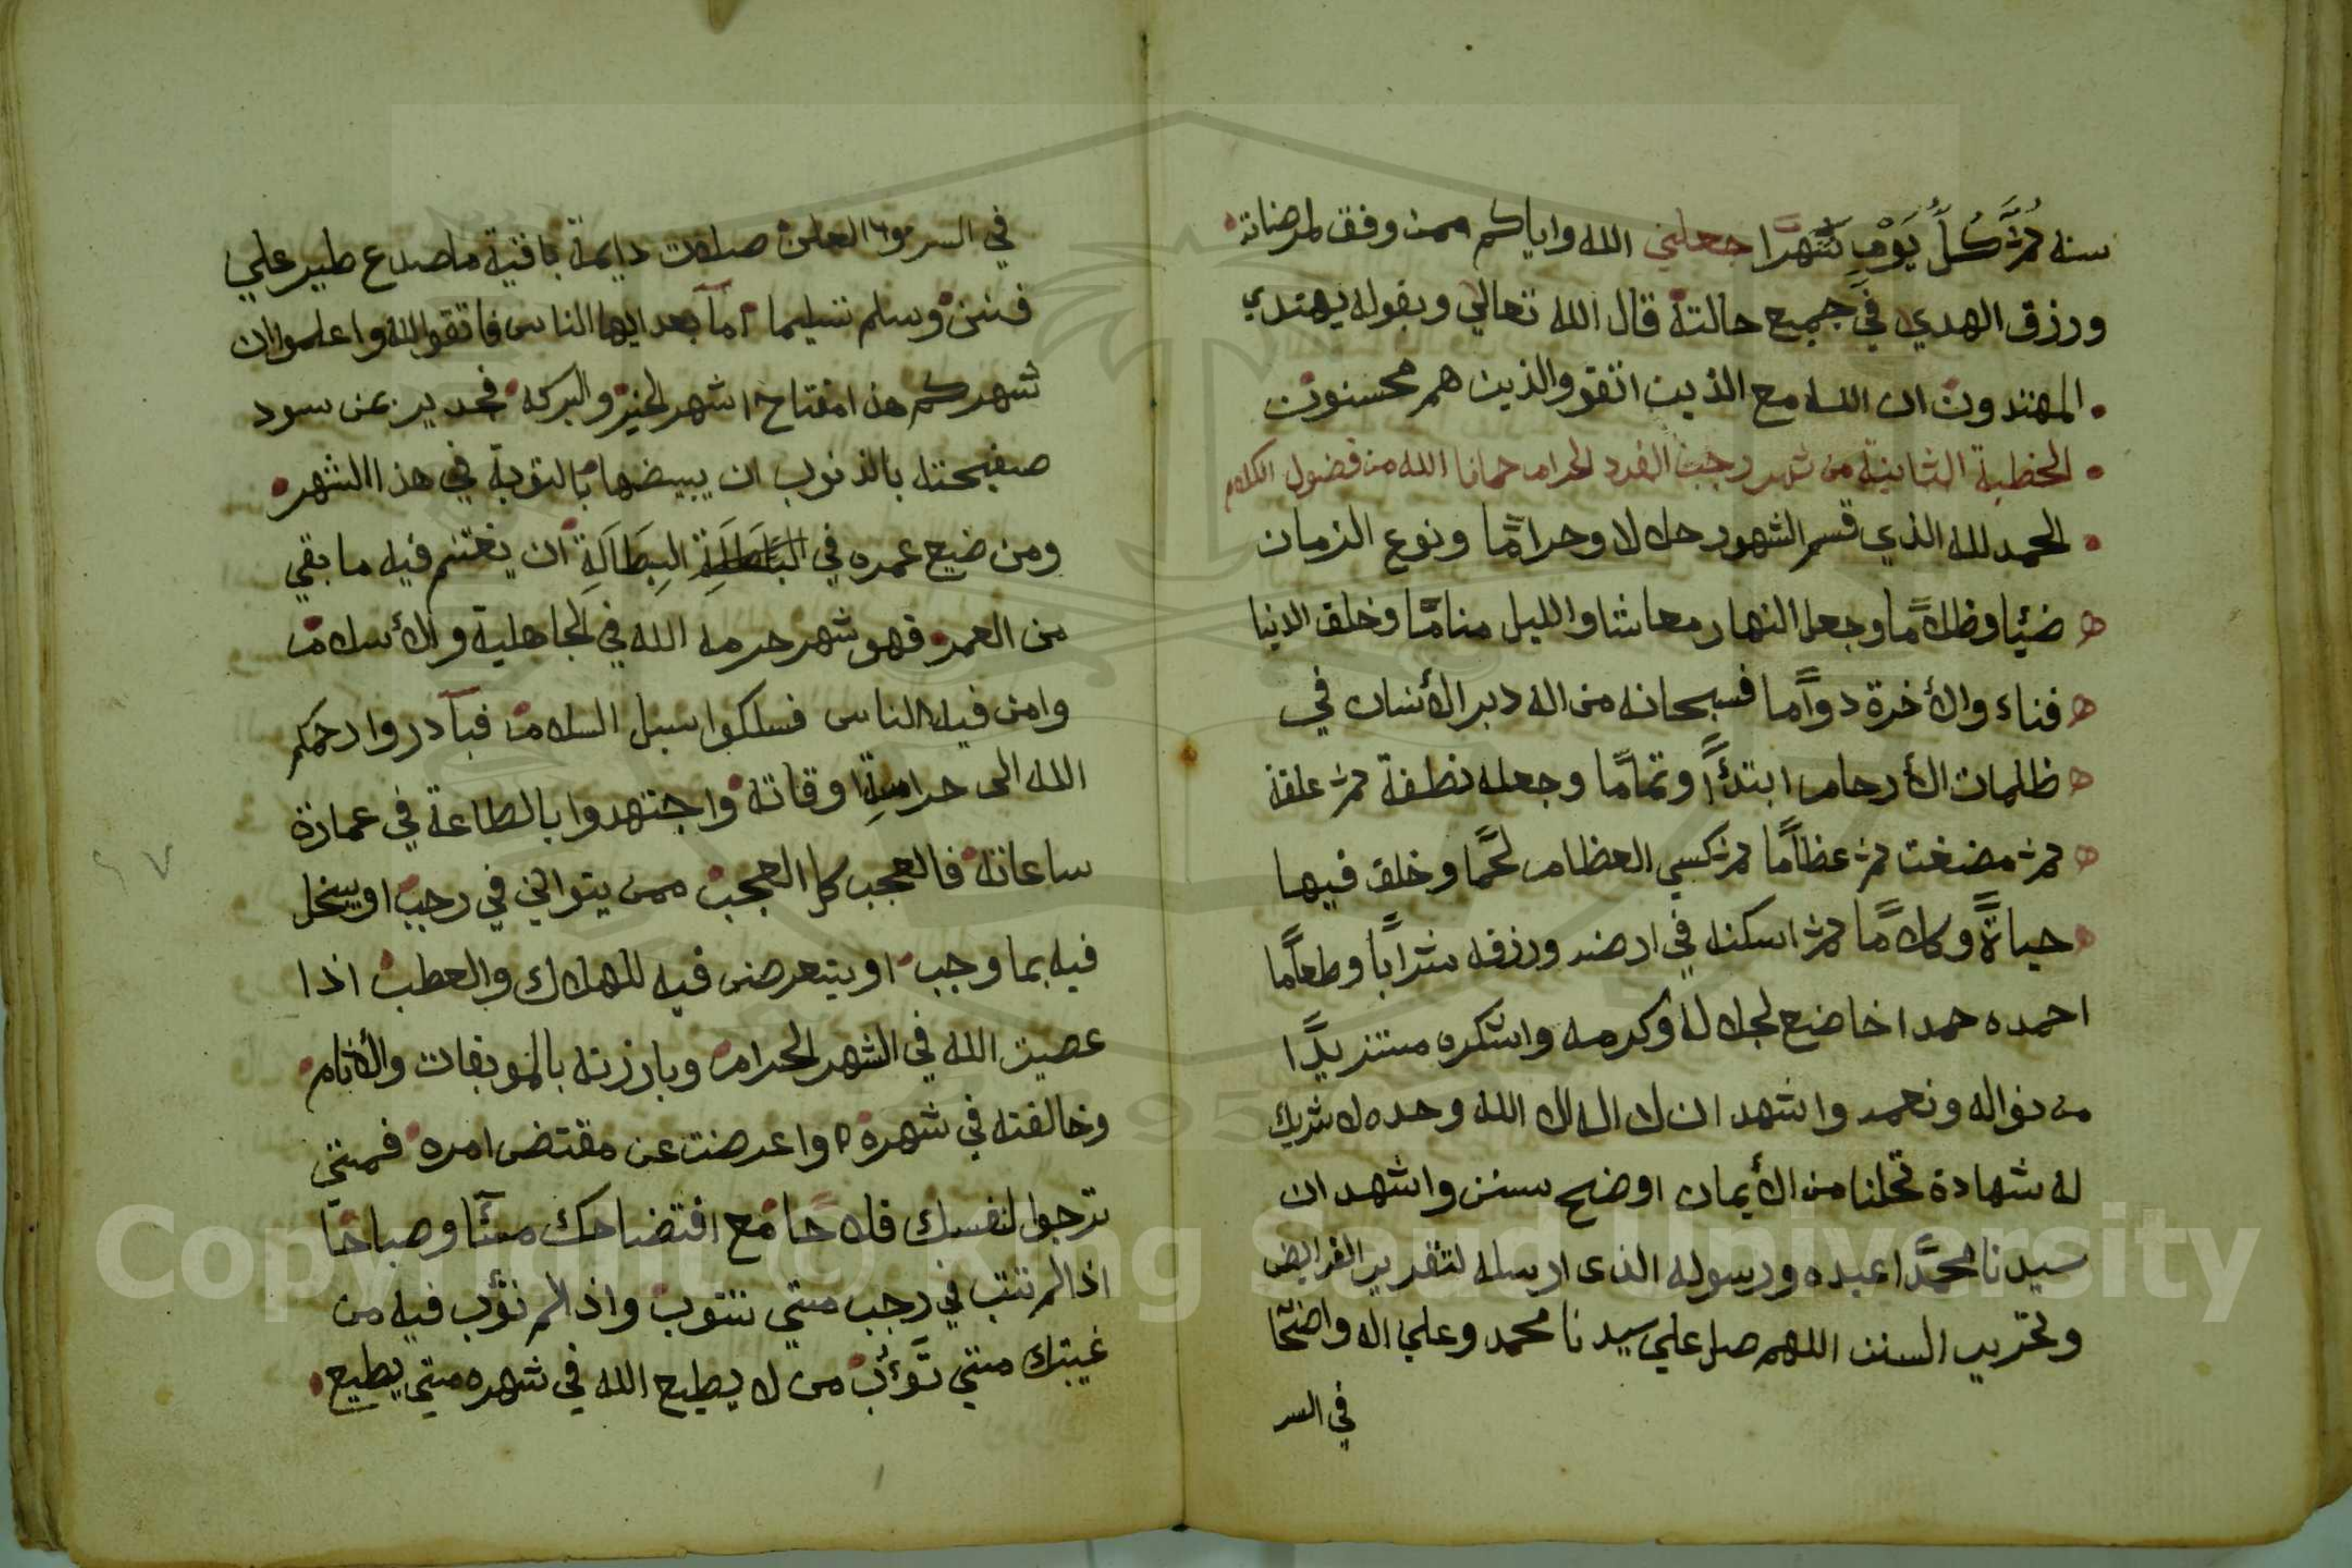 سنه ثمَّ كُلَّ يَوْمٍ شَهْرًا جعلني الله واياكم ممن وفق لمرضاته
ورزق الهدي في جميع حالته قال الله تعالي وبقوله يهتدي
المهتدون ان الله مع الذين اتقو والذين هم محسنون
الخطبة الثانية من شهر رجب الفرد الحرام حمانا الله من فضول الكلام
الحمد لله الذي قسم الشهور حلالا وحرامًا ونوع الزمان
ضيئا وظلامًا وجعل النهار معاشا والليل منامًا وخلق الدنيا
فناء والأخرة دوامًا فسبحانه من اله دبر الأنسان في
ظلمات الأرحام ابتدًأ وتمامًا وجعله نطفة ثم علقة
ثم مضغت ثم عظامًا ثم كسي العظام لحمًا وخلق فيها
حياةً وكلامًا ثم اسكنه في ارضه ورزقه شرابًا وطعامًا
احمده حمدا خاضع لجلاله وكرمه واشكره مستزيدًا
من نواله ونعمه واشهد ان لا اله الا الله وحده لا شريك
له شهادة تحلنا من الأيمان اوضح سنن واشهد ان
سيدنا محمدًا عبده ورسوله الذى ارسله لتقرير الفرايض
وتحرير السنن اللهم صل علي سيدنا محمد وعلي اله واضحًا
في السر
في السر والعلن صلات دايمة باقية ما صدع طير علي
فنن وسلم تسليما اما بعد ايها الناس فاتقو الله واعلموا ان
شهركم هذا مفتاح اشهر الخير والبركه فجدير بمن سود
صفيحته بالذنوب ان يبيضها بالتوبة في هذا الشهر
ومن ضيع عمره في البِطَالَةِ ان يغتنم فيه ما بقي
من العمر فهو شهر حرمه الله في الجاهلية والأسلام
وامن فيه الناس فسلكوا سبل السلام فبآدروا رحمكم
الله الى حرامة اوقاته واجتهدوا بالطاعة في عمارة
ساعاته فالعجب كل العجب ممن يتواني في رجب او يبخل
فيه بما وجب او يتعرض فيه للهلاك والعطب اذا
عصيت الله في الشهر الحرام وبارزته بالموبقات والأثام
وخالفته في شهره واعرضت عن مقتضى امره فمتي
ترجوا لنفسك فلاحا مع افتضاحك مسًأ وصباحًا
اذا لم تتب في رجب متي تتوب واذ لم تؤب فيه من
غيبتك متي تؤب من لا يطيع الله في شهره متي يطيع
٤٧